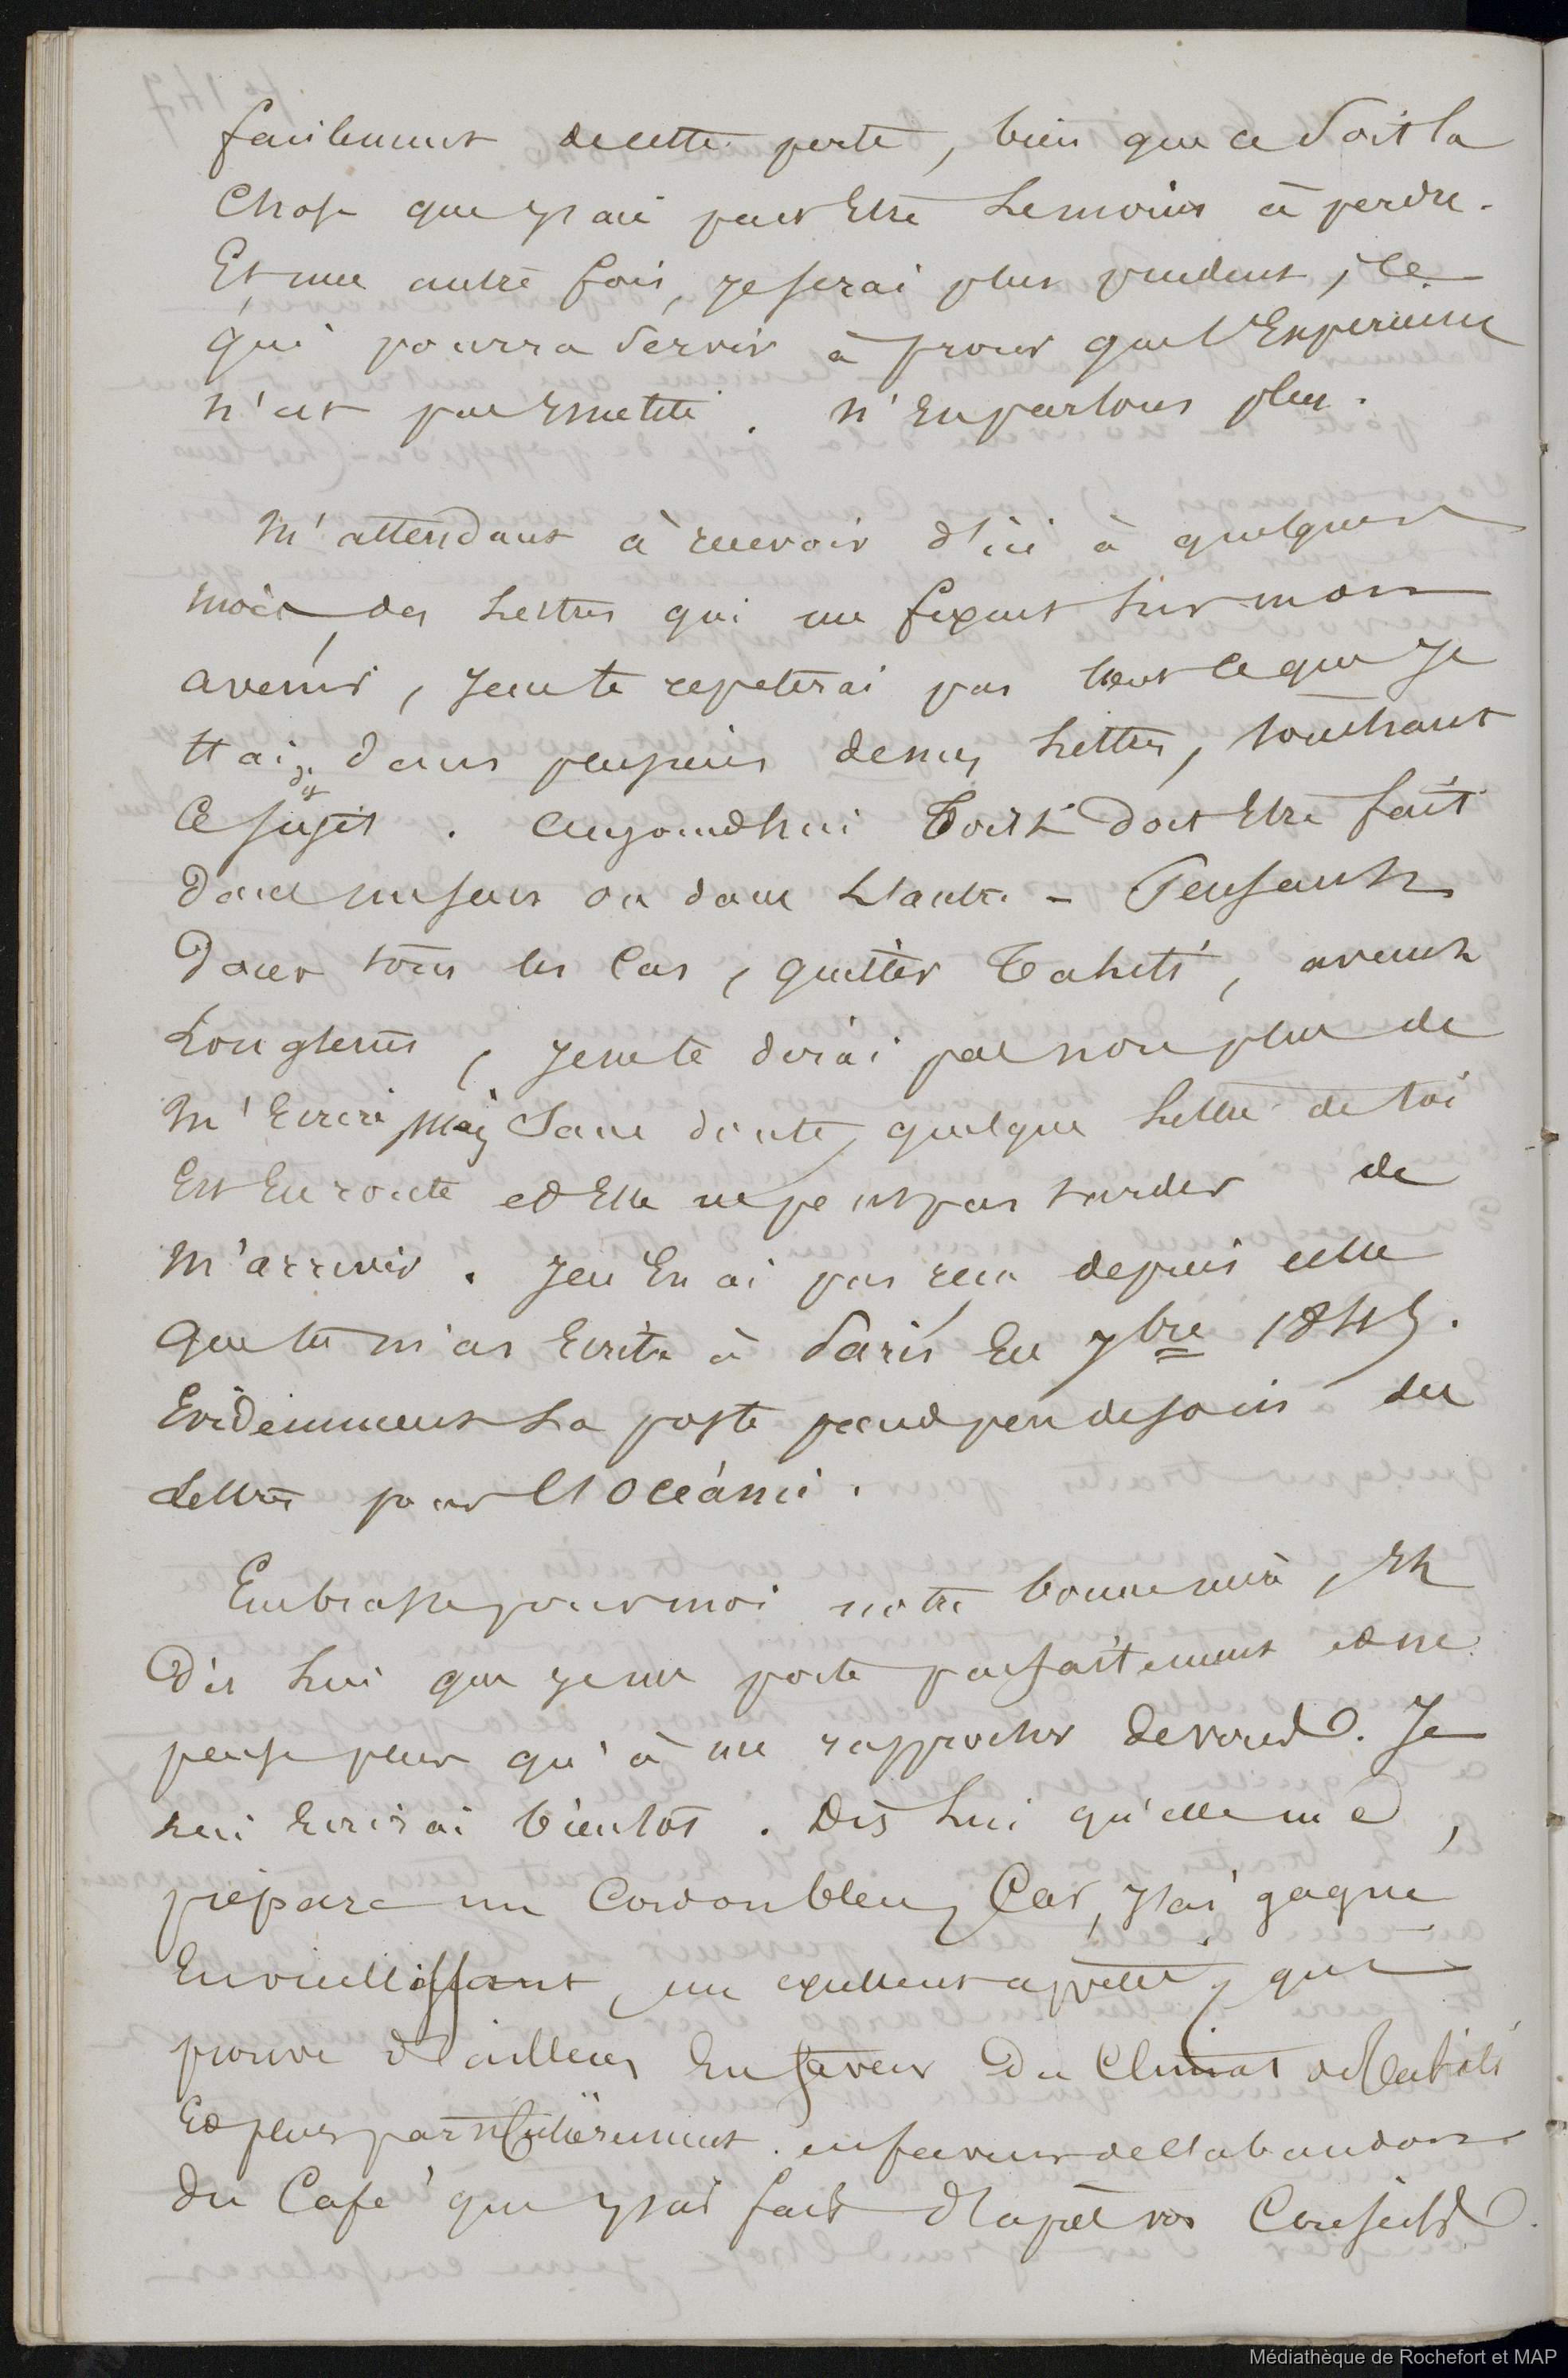 facilement de cette perte, bien que ce soit la
chose que j'ai peut Etre Le moins à perdre.
Et une autre fois, je serai plus prudent, ce
qui pourra servir à prouver que l'Experience
n'est pas inutile. N'en parlons plus.
M'attendant à recevoir d'ici à quelques
mois, des Lettres qui me fixent sur mon
avenir, je ne te repeterai pas tout ce que Je
t'ai dit dans plusieurs de mes Lettres, touchant
ce sujet. Aujourdhui Tout doit Etre fait
dans un sens ou dans L'autre - Pensant
dans tous les Cas, quitter Tahiti, avant
Longtems, je ne te dirai pas non plus de
M'Ecrire, Mais sans doute, quelque Lettre de toi
Est En route et Elle ne peut pas tarder de
M'arriver. Je n'En ai pas recu depuis celle
que tu m'as Ecrite à Paris En 7bre 1845.
Evidemment La poste prend peu de soin des
Lettres pour l'Océanie.
Embrasse pour moi notre bonne mère, Et
Dis Lui que je me porte parfaitement et ne
pense plus qu'à me rapprocher de vous. Je
Lui Ecrirai bientot. Dis Lui qu'elle me
prépare un Cordon bleu, Car, j'ai gagné
En vieillissant, un excellent appetit, qui
prouve d'ailleurs En faveur Du Climat de Tahiti
Et plus particulièrement en faveur de l'abandon
du Café que j'ai fait d'après vos Conseils.
Médiathèque de Rochefort et MAP